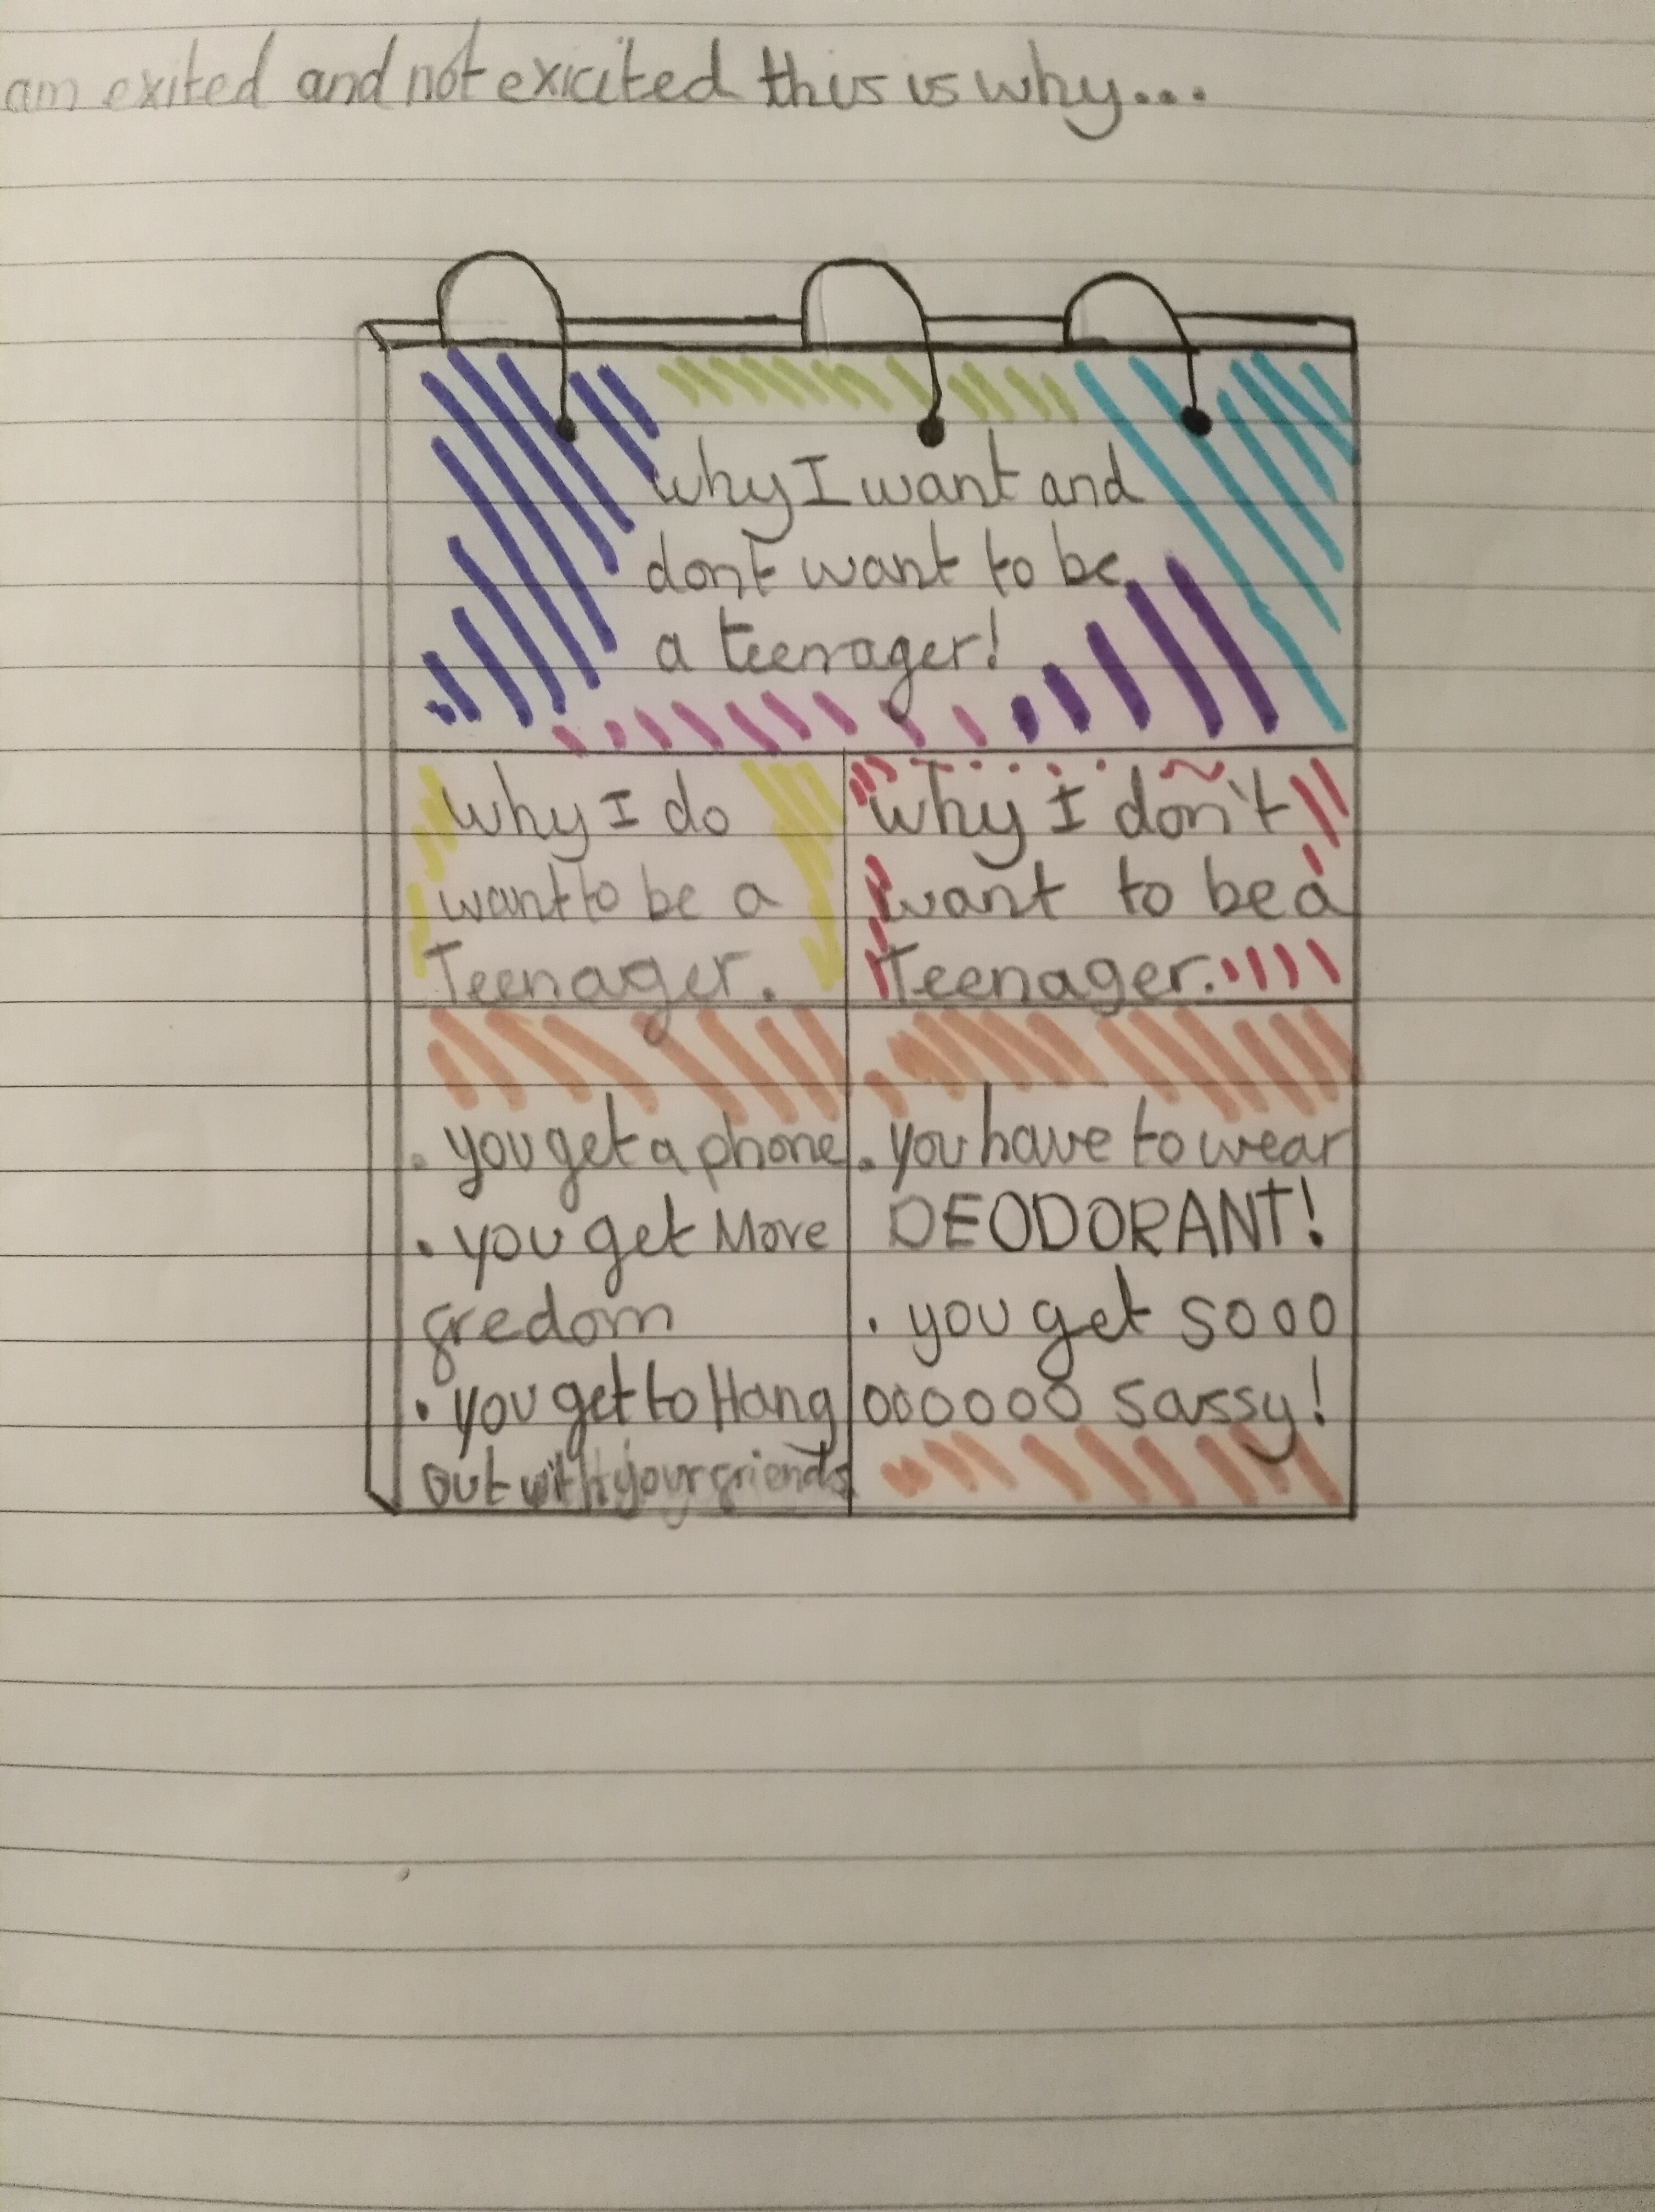 am exited and not exicited this is why...
why I want and
dont want to be
a teenager!
why I do
want to be a
Teenager.
why I don't
want to be a
Teenager.
. you get a phone
. you get More
fredom
. you get to Hang
out with your friends
. you have to wear
DEODORANT!
. you get sooo
oooooo sassy!